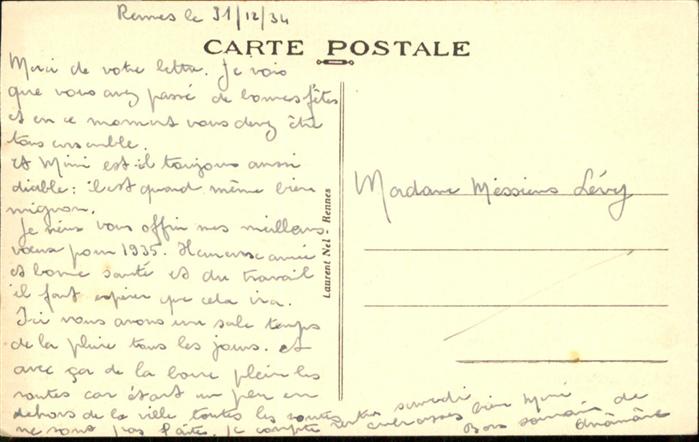 Rennes le 31/12/34
CARTE POSTALE
Merci de votre lettre. Je vois
que vous avez passé de bonnes fêtes
et en ce moment vous devez être
tous ensemble.
Et Mimi est-il toujours aussi
diable: il est quand même bien
mignon.
Je viens vous offrir mes meilleurs
vœux pour 1935. Heureuse année
et bonne santé et du travail
il faut espérer que cela ira.
Ici nous avons un sale temps
de la pluie tous les jours. et
avec ça de la boue plein les
routes car étant un peu en
dehors de la ville toutes les routes
ne sont pas faites. Je compte rentrer samedi
embrassez bien Mimi
Bons souvenirs de
Madame Messieurs Lévy
Laurent Nel - Rennes